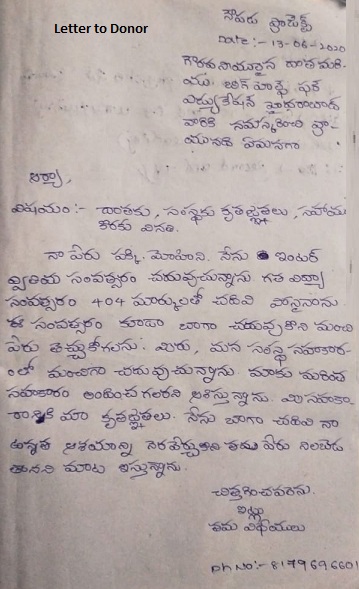 Letter to Donor
నౌపరు ప్రాజెక్ట్
Date :- 13-06-2020
గౌరవనీయులైన దాత మరి
యు బిగ్ హెల్ప్ ఫర్
ఎడ్యుకేషన్ హైదరాబాద్
వారికి నమస్కరించి వ్రా
యునది ఏమనగా
ఆర్యా,
విషయం :- దాతకు, సంస్థకు కృతజ్ఞతలు, సహాయ
కొరకు వినతి.
నా పేరు పక్కి మోహిని. నేను ఇంటర్
ద్వితియ సంవత్సరం చదువుచున్నాను గత విద్యా
సంవత్సరం 404 మార్కులతో చదివి పాసైనాను.
ఈ సంవత్సరం కూడా బాగా చదువుకొని మంచి
పేరు తెచ్చుకోగలను. మీరు, మన సంస్థ సహకార-
ంలో మంచిగా చదువుచున్నాను మాకు మరింత
సహకారం అందించగలరని ఆశిస్తున్నాను. మీ సహకా-
రానికి మా కృతజ్ఞతలు. నేను బాగా చదివి నా
ఉన్నత ఆశయాన్ని నెరవేర్చుకుని తమ పేరు నిలబెడ
తానని మాట ఇస్తున్నాను.
చిత్తగించవలెను.
ఇట్లు
తమ విధేయులు
Ph No:- 8179696601